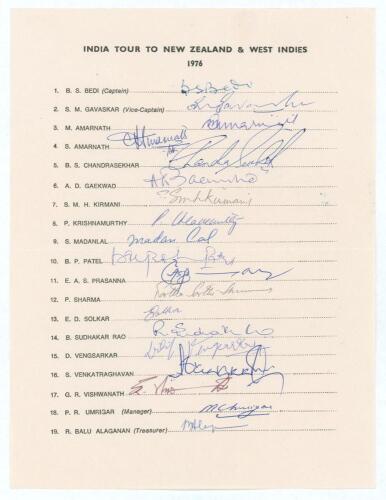 INDIA TOUR TO NEW ZEALAND & WEST INDIES
1976
1. B. S. BEDI (Captain) BSBedi
2. S. M. GAVASKAR (Vice-Captain)
3. M. AMARNATH
4. S. AMARNATH
5. B. S. CHANDRASEKHAR
6. A. D. GAEKWAD
7. S. M. H. KIRMANI SMHKirmani
8. P. KRISHNAMURTHY
9. S. MADANLAL Madan Lal
10. B. P. PATEL
11. E. A. S. PRASANNA
12. P. SHARMA
13. E. D. SOLKAR
14. B. SUDHAKAR RAO
15. D. VENGSARKAR
16. S. VENKATRAGHAVAN
17. G. R. VISHWANATH
18. P. R. UMRIGAR (Manager)
19. R. BALU ALAGANAN (Treasurer)